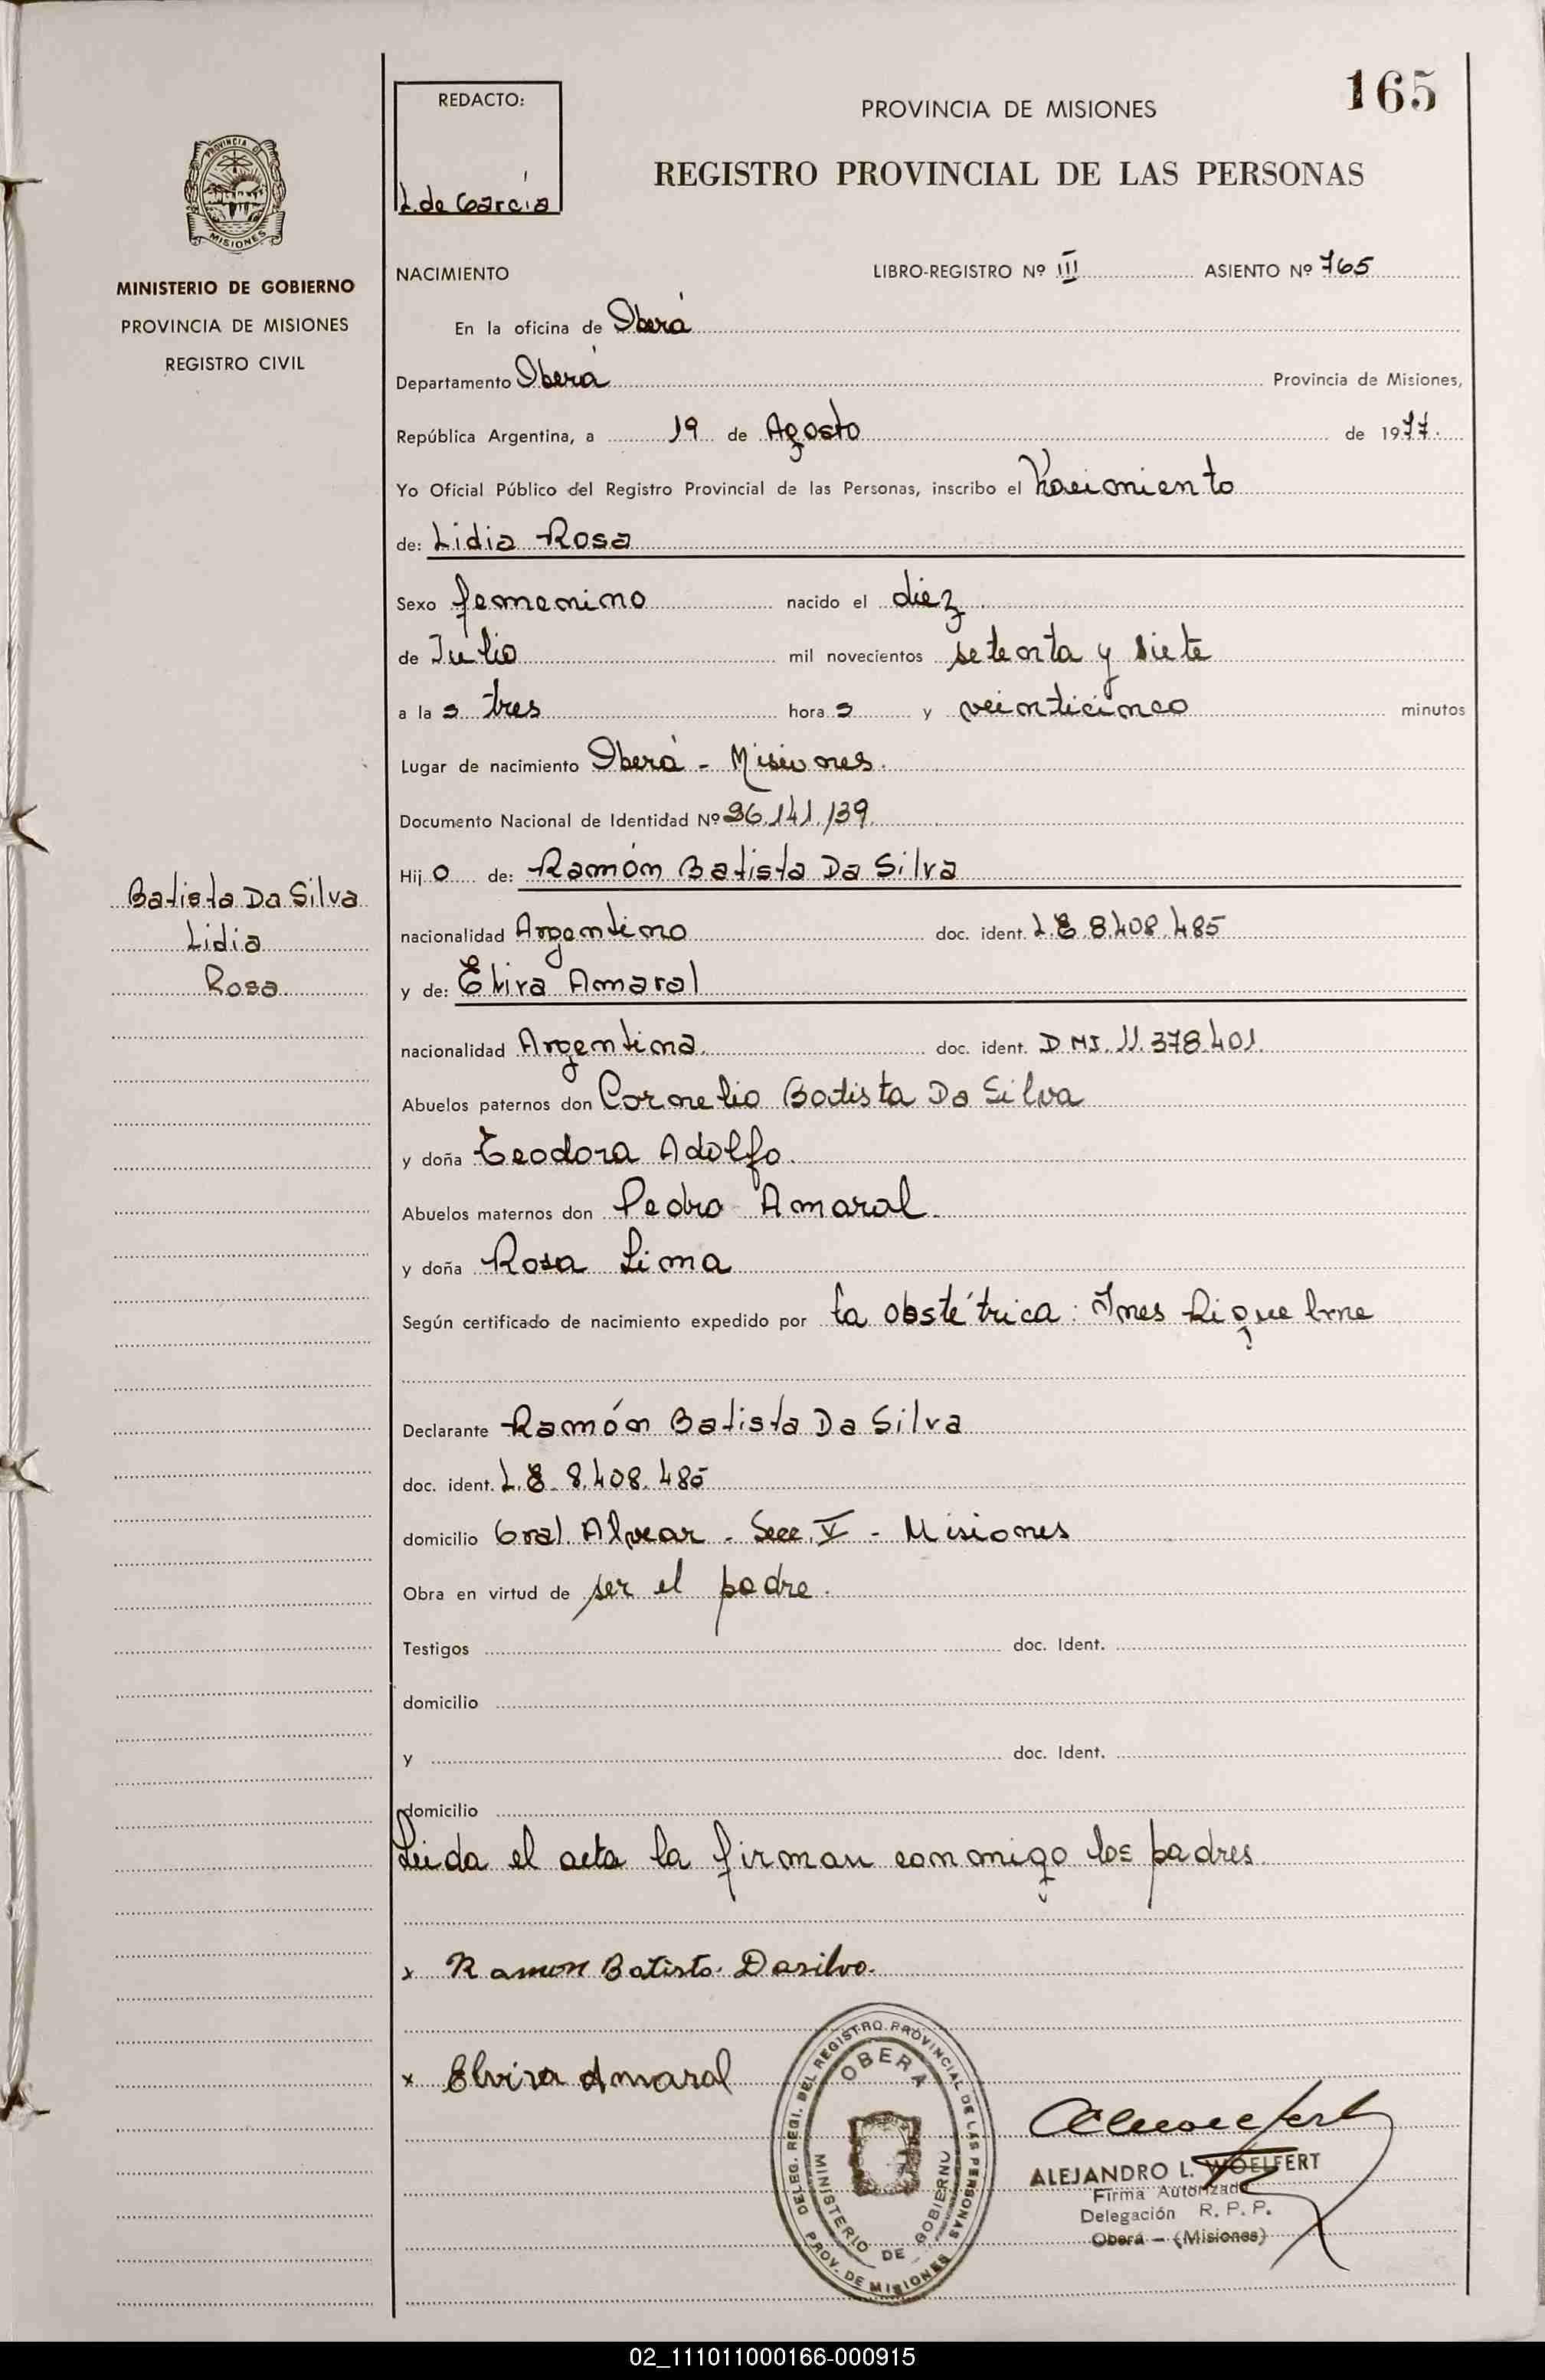 165
REDACTO:
L. de García
PROVINCIA DE MISIONES
REGISTRO PROVINCIAL DE LAS PERSONAS
PROVINCIA DE
MISIONES
MINISTERIO DE GOBIERNO
PROVINCIA DE MISIONES
REGISTRO CIVIL
NACIMIENTO LIBRO-REGISTRO Nº III ASIENTO Nº 765
En la oficina de Oberá
Departamento Oberá Provincia de Misiones,
República Argentina, a 19 de Agosto de 1977.
Yo Oficial Público del Registro Provincial de las Personas, inscribo el Nacimiento
de: Lidia Rosa
Sexo femenino nacido el diez
de Julio mil novecientos setenta y siete
a la s tres hora s y veinticinco minutos
Lugar de nacimiento Oberá - Misiones.
Documento Nacional de Identidad Nº 26.141.139.
Hij o de: Ramón Batista Da Silva
Batista Da Silva
Lidia
Rosa
nacionalidad Argentino doc. ident. L.E 8.408.485
y de: Elvira Amaral
nacionalidad Argentina. doc. ident. DNI. 11.378.401.
Abuelos paternos don Cornelio Batista Da Silva
y doña Teodora Adolfo.
Abuelos maternos don Pedro Amaral.
y doña Rosa Lima
Según certificado de nacimiento expedido por la obstétrica: Ines Riquelme
Declarante Ramón Batista Da Silva
doc. ident. L.E. 8.408.485
domicilio Gral. Alvear - Secc. V - Misiones
Obra en virtud de ser el padre.
Testigos doc. Ident.
domicilio
y doc. Ident.
domicilio
Leida el acta la firman conmigo los padres
x Ramon Batista Dasilva.
x Elvira Amaral
DELEG. REGI. DEL REGISTRO PROVINCIAL DE LAS PERSONAS
OBERA
MINISTERIO DE GOBIERNO
PROV. DE MISIONES
ALEJANDRO L. WOELFERT
Firma Autorizada
Delegación R. P. P.
Oberá - (Misiones)
02_111011000166-000915